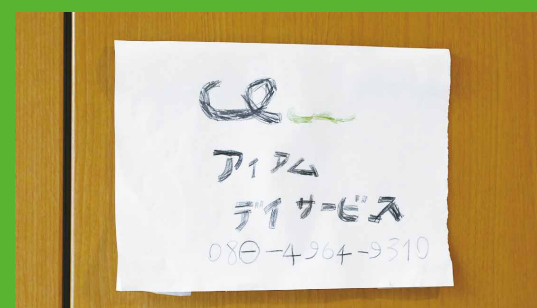 アィアム
デイサービス
080-4964-9310